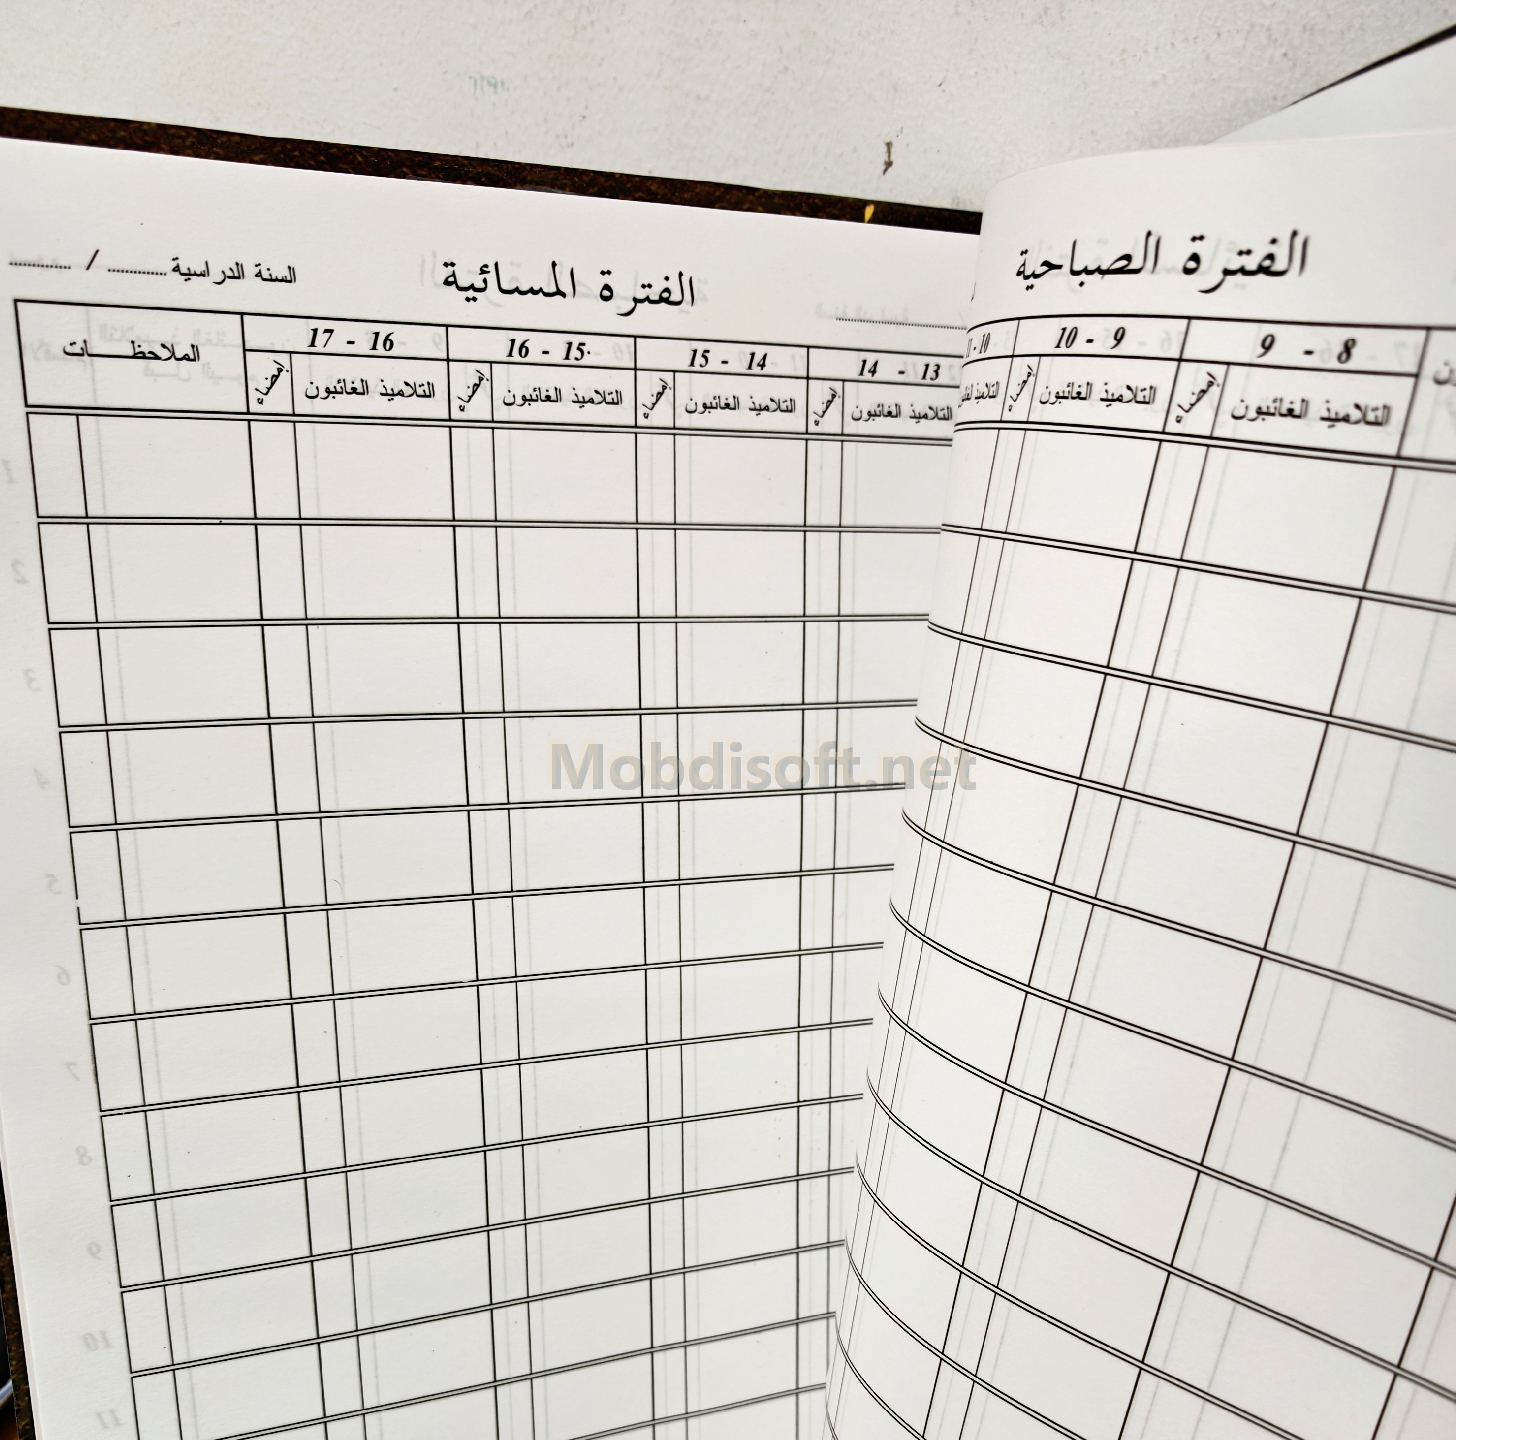 الفترة الصباحية
8 - 9
9 - 10
10 - 11
التلاميذ الغائبون
إمضاء
التلاميذ الغائبون
إمضاء
التلاميذ
الفترة المسائية
السنة الدراسية ............ / ............
13 - 14
14 - 15
15 - 16
16 - 17
الملاحظـــات
التلاميذ الغائبون
إمضاء
التلاميذ الغائبون
إمضاء
التلاميذ الغائبون
إمضاء
التلاميذ الغائبون
إمضاء
Mobdisoft.net